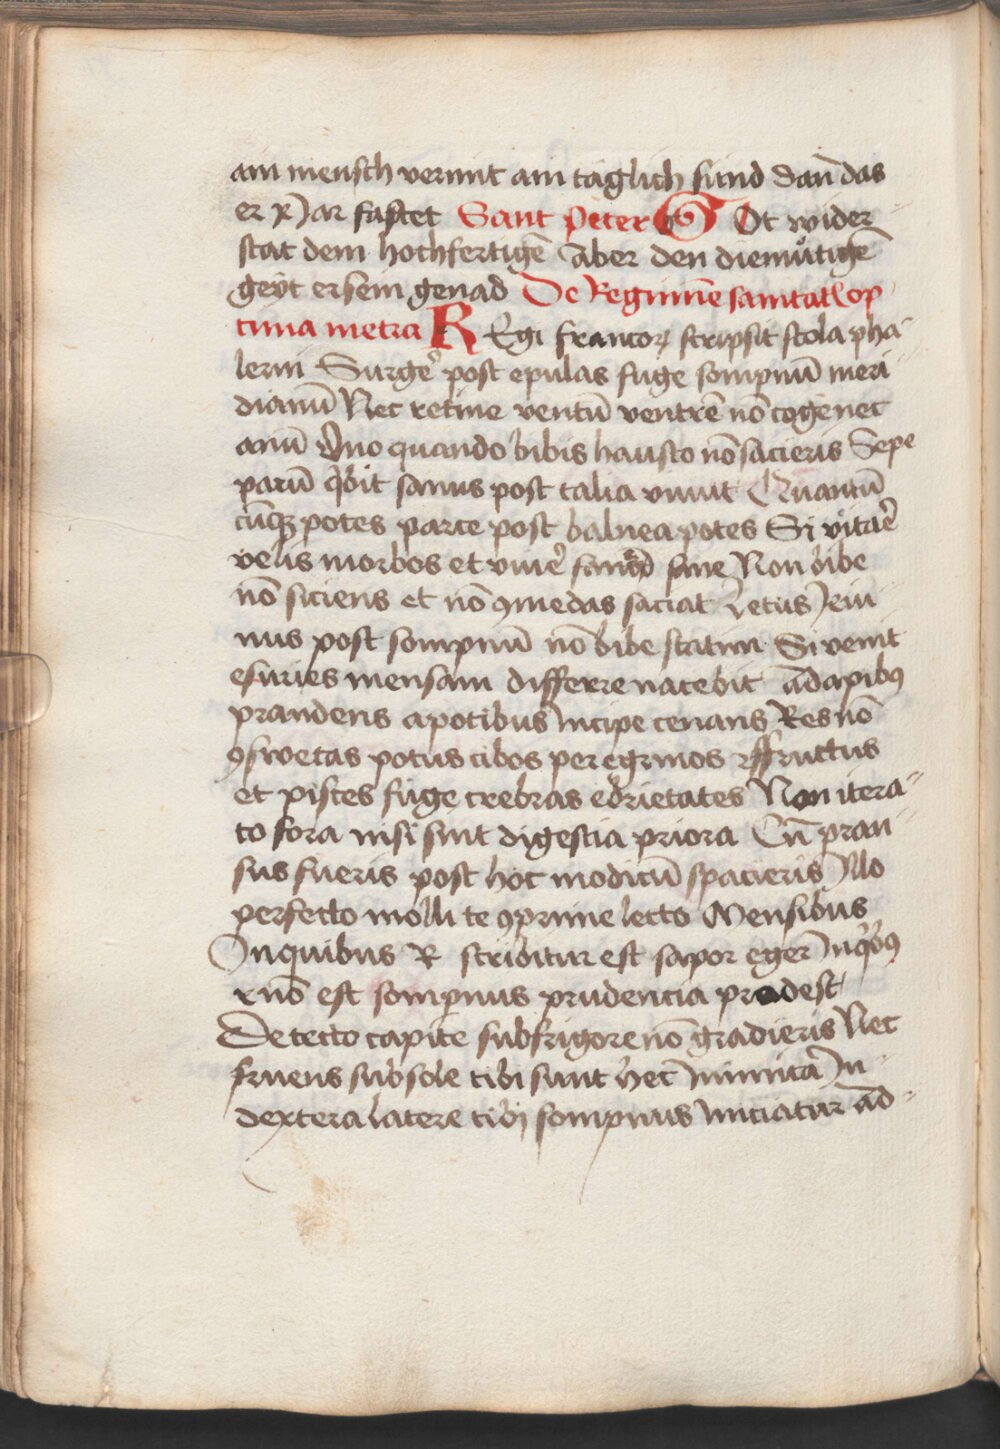 ain mensch vermit ain täglich sünd dan̄ das
er x Jar fastet Sant peter G Ot wider
stat dem hochfertigē aber den diemůtigē
geÿt er sein genad De Regimīe sanitatꝭ op
tima metra R Egi francoꝝ scripsit scola pha
lerni Surge᷑ post epulas fuge sompnū meri
dianū Nec retine ventū ventrē nō coge nec
anū Quo quando bibis hausto nō sacieris Sepe
parū bibit sanus post talia viuit Quantū
cūqꝫ potes parce post balnea potes Si vitare᷑
velis morbos et viue᷑ sane Non bibe
nō siciens et nō ꝯmedas saciat Letus Jeiu
nus post sompnū nō bibe statim Si venit
esuries mensam differre nocebit a dapibꝯ
prandens a potibus Incipe cenans Res nō
ꝯswetas potus cibos peregrinos fructus
et pisces fuge crebras ebrietates Non itera
to fora nisi sint digestia priora Cū pran
sus fueris post hoc modicū spacieris Illo
perfecto molli te ꝯprime lecto Mensibus
In quibus R scribitur est sapor eger In qͥbꝯ
r nō est sompnus prudencia prodest
Detecto capite sub frigore nō gradieris Nec
fruens sub sole tibi sunt hec Inimica In
dextera latere tibi sompnus Iniciatur ad